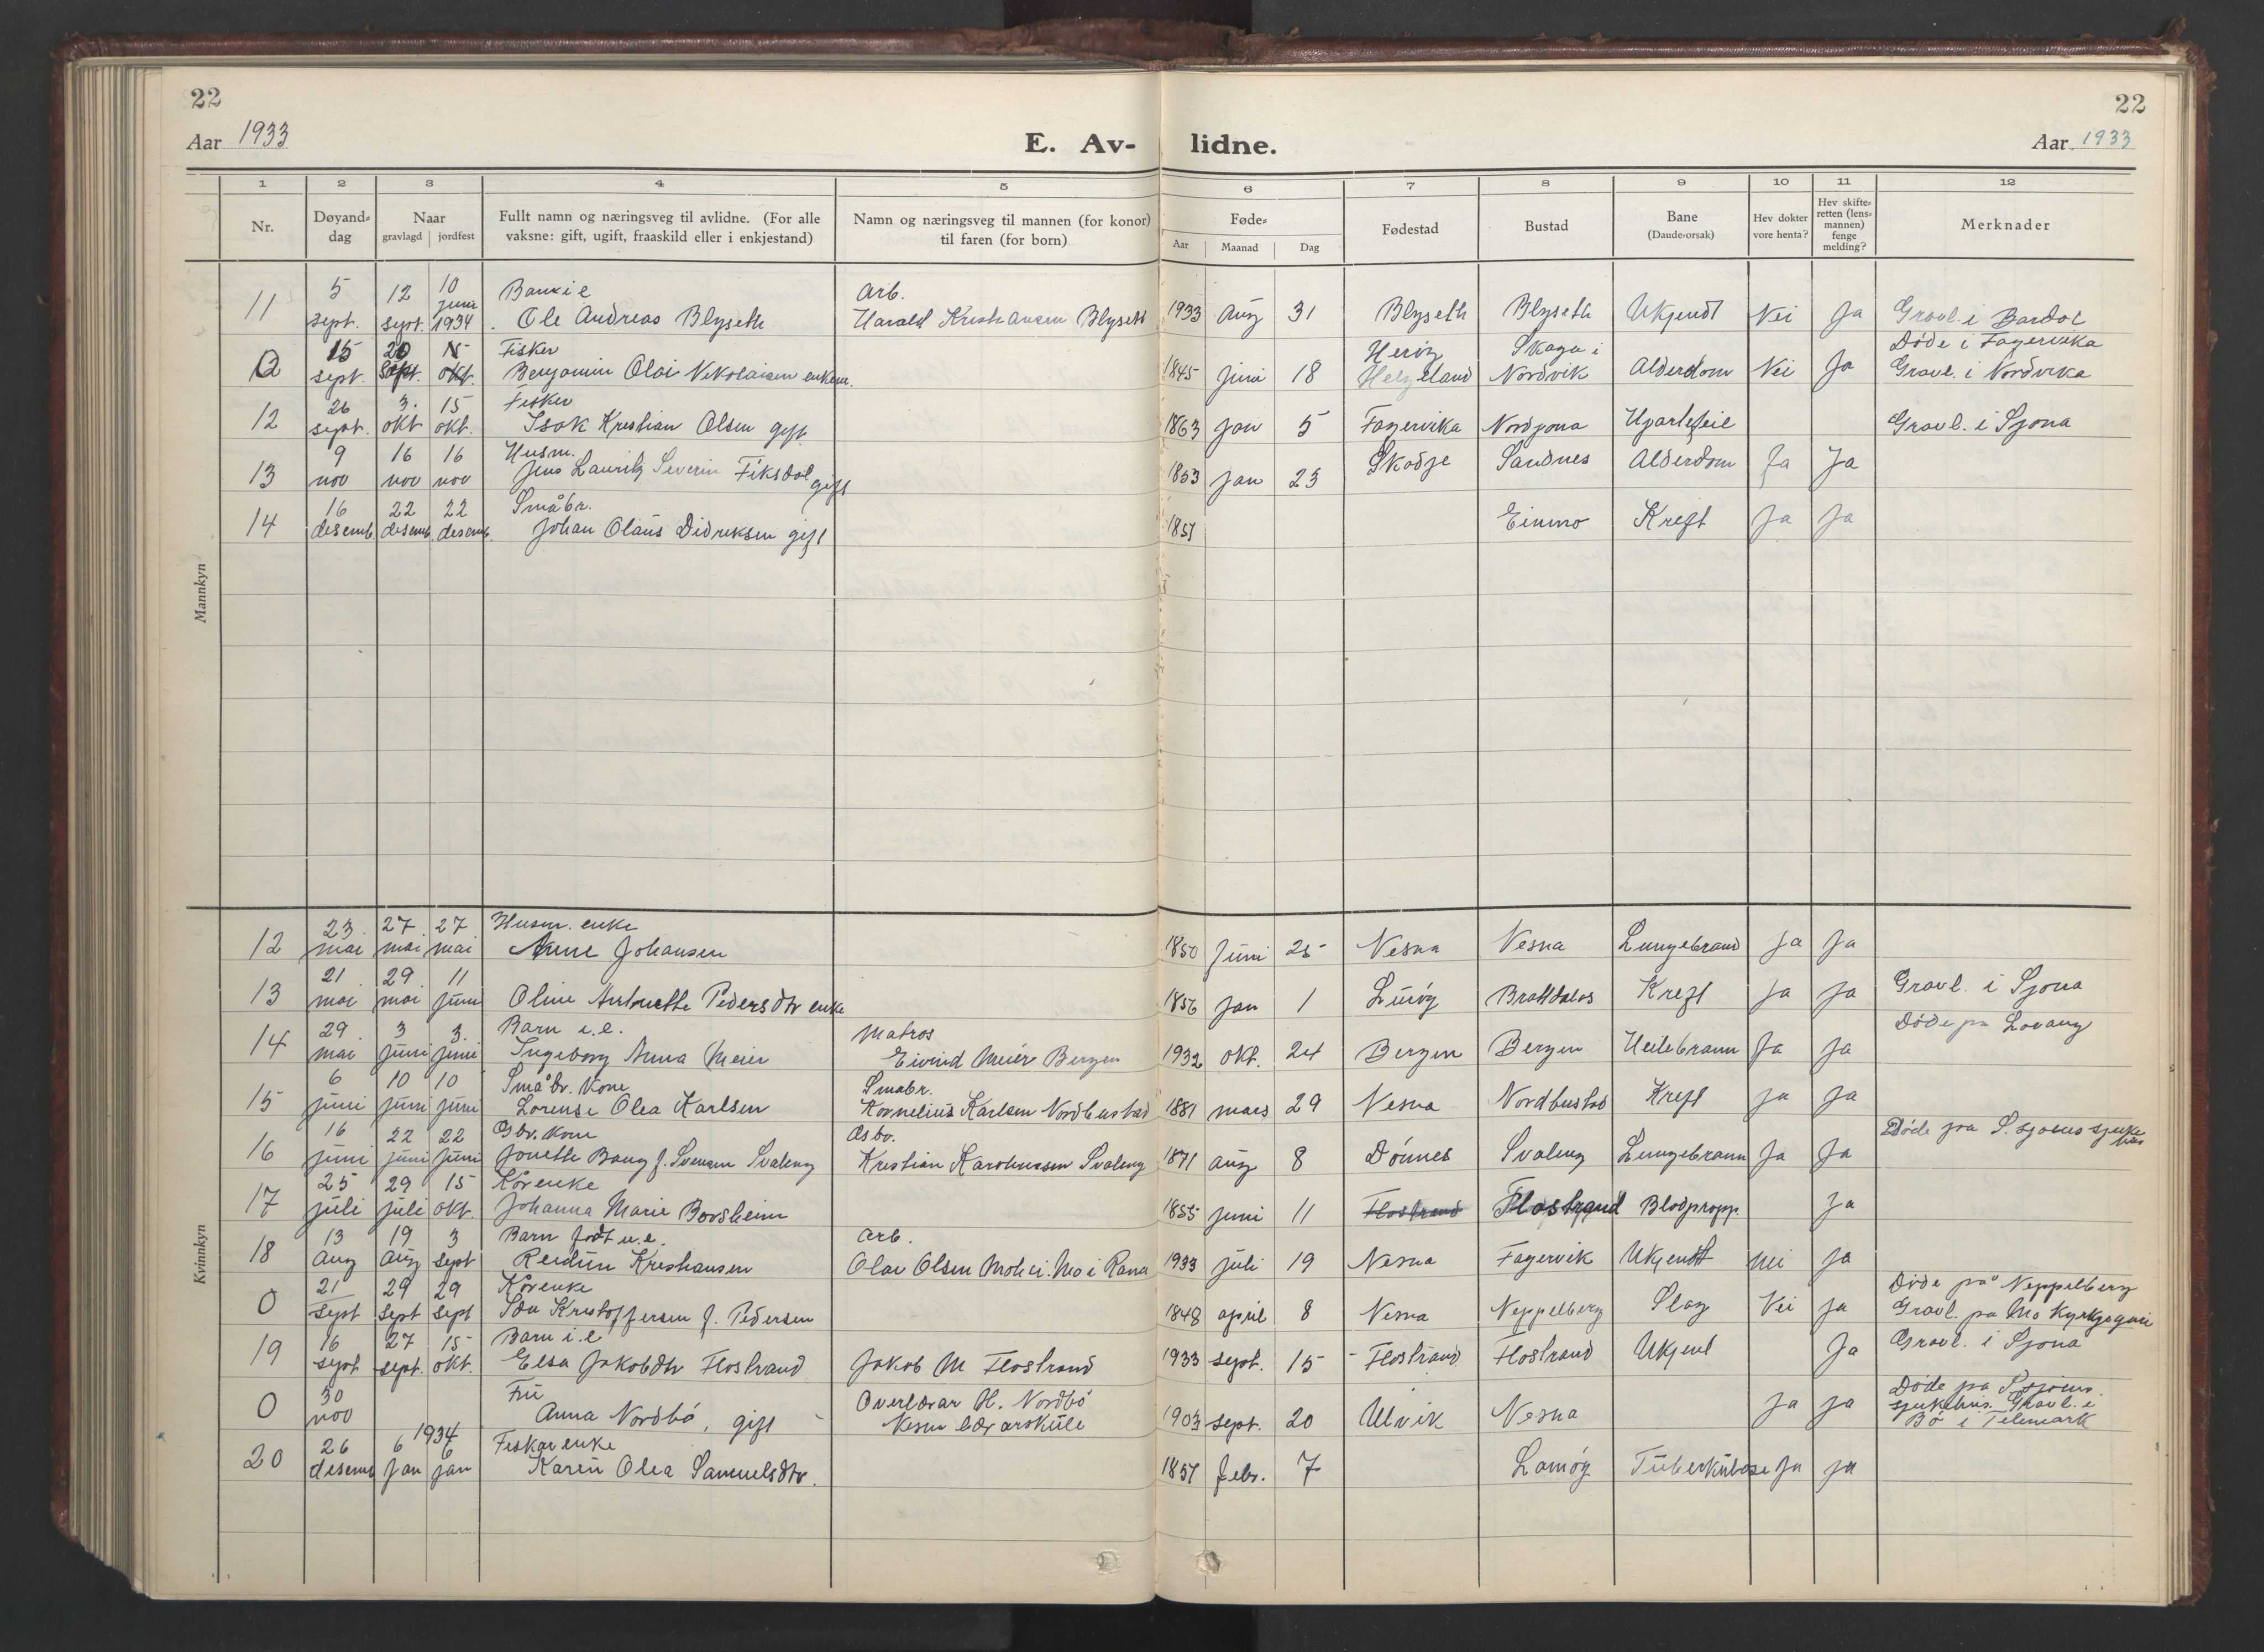 22
22
Aar 1933
E. Av- lidne.
Aar 1933
1 2 3 4 5 6 7 8 9 10 11 12
Nr.
Døyand-dag
Naar
gravlagd | jordfest
Fullt namn og næringsveg til avlidne. (For alle
vaksne: gift, ugift, fraaskild eller i enkjestand)
Namn og næringsveg til mannen (for konor)
til faren (for born)
Føde-
Aar Maanad Dag
Fødestad
Bustad
Bane
(Daude-orsak)
Hev dokter
vore henta?
Hev skifte-
retten (lens-
mannen)
fenge
melding?
Merknader
Mannkyn
11 5 sept. 12 sept. 10 juni 1934 Ole Andreas Blyseth Arb. Harald Kristiansen Blyseth 1933 Aug 31 Blyseth Blyseth Ukjendt Nei Ja Gravl. i Bardal
15 sept. 20 sept. 15 okt. Fisker Benjamin Olai Nikolaisen enkem. 1845 juni 18 Herøy Helgeland Skaga i Nordvik Alderdom Nei Ja Døde i Fagervika Gravl. i Nordvika
12 26 sept. 3. okt 15 okt. Fisker Isak Kristian Olsen gift 1863 jan 5 Fagervika Nordsjona Hjartefeil Gravl. i Sjona
13 9 nov 16 nov 16 nov Husm. Jens Lauritz Severin Fiksdal gift 1853 jan 23 Skodje Sandnes Alderdom Ja Ja
14 16 desemb. 22 desemb. 22 desemb. Småbr. Johan Olaus Didriksen gift 1851 Einmo Kreft Ja Ja
Kvinnkyn
12 23. mai 27. mai 27 mai Husm. enke Anne Johansen 1850 Juni 25 Nesna Nesna Lungebrand Ja Ja
13 21 mai 29 mai 11 juni Oline Antonette Pedersdtr enke 1856 jan 1 Lurøy Brattdalos Kreft Ja Ja Gravl. i Sjona
14 29. mai 3 juni 3. juni Barn i.e. Ingeborg Anna Meier Matros Eivind Meier Bergen 1932 okt. 24 Bergen Bergen Heilebrann Ja Ja Døde på Lovang
15 6 juni 10 juni 10 juni Småbr. kone Lorense Olea Karlsen Småbr. Kornelius Karlsen Nordbustad 1881 mars 29 Nesna Nordbustad Kreft Ja Ja
16 16 juni 22 juni 22 juni Gbr. kone Jonette Bang f. Svensen Svaleng Gbr. Kristian Karoliussen Svaleng 1871 aug 8 Dönnes Svaleng Lungebrann Ja Ja Døde på S. sjoens sjukehus
17 25 juli 29 juli 15 okt. Kårenke Johanna Marie Borsheim 1855 juni 11 Flostrand Flostrand Blodpropp. Ja
18 13 Aug 19 Aug 3 sept Barn født u.e. Reidun Kristiansen Arb. Olav Olsen Mohei. Mo i Rana 1933 juli 19 Nesna Fagervik Ukjendt Nei Ja
0 21 sept 29 sept 29 sept Kårenke Ida Kristoffersen f. Pedersen 1848 april 8 Nesna Neppelberg Slag Nei Ja Døde på Neppelberg Gravl. på Mo Kyrkjegard
19 16 sept. 27 sept. 15 okt. Barn i.e Elsa Jakobdtr Flostrand Jakob M Flostrand 1933 sept. 15 Flostrand Flostrand Ukjent Ja Gravl. i Sjona
0 30 nov Fru Anna Nordbö, gift Overlærar H. Nordbö Nesna lærarskule 1903 sept. 20 Ulvik Nesna Ja Ja Døde på S.sjoens sjukehus. Gravl. i Bø i Telemark
20 26 desemb 1934 6 jan 6 jan Fiskarenke Karen Olea Samuelsdtr. 1857 febr. 7 Lamøy Tuberkulose Ja Ja